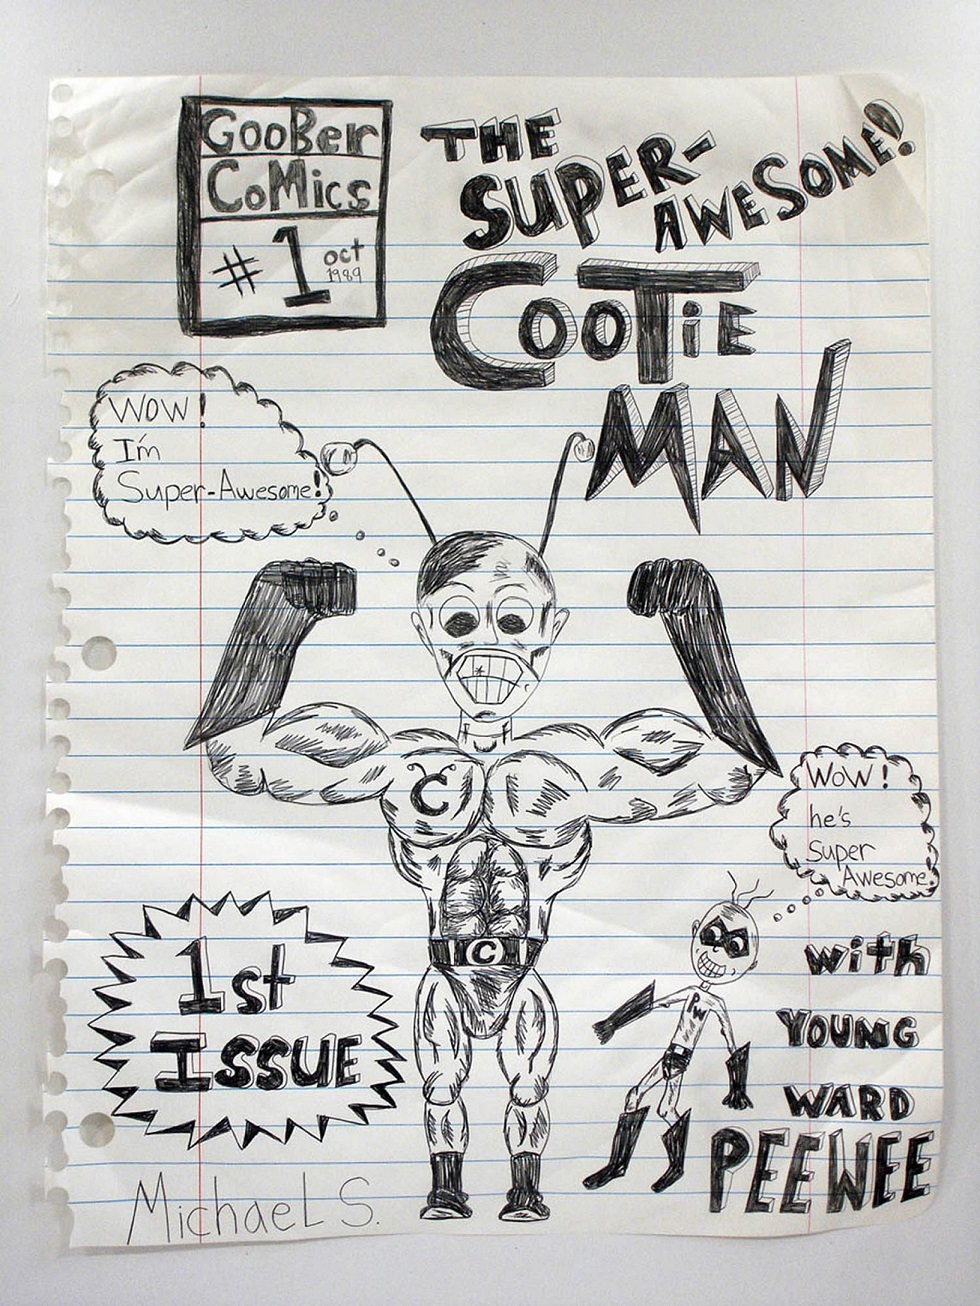 GooBer
CoMics
#1 oct
1989
THE
SUPER-
AWESOME!
CooTiE
MAN
WOW!
I'm
Super-Awesome!
C
C
WOW!
he's
Super
Awesome.
PW
1st
ISSUE
with
YOUNG
WARD
PEEWEE
MichaeL S.